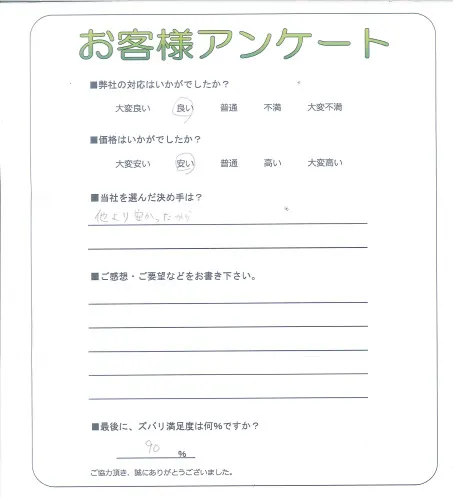 お客様アンケート
■弊社の対応はいかがでしたか？
大変良い 良い 普通 不満 大変不満
■価格はいかがでしたか？
大変安い 安い 普通 高い 大変高い
■当社を選んだ決め手は？
他より安かったから
■ご感想・ご要望などをお書き下さい。
■最後に、ズバリ満足度は何％ですか？
90 ％
ご協力頂き、誠にありがとうございました。